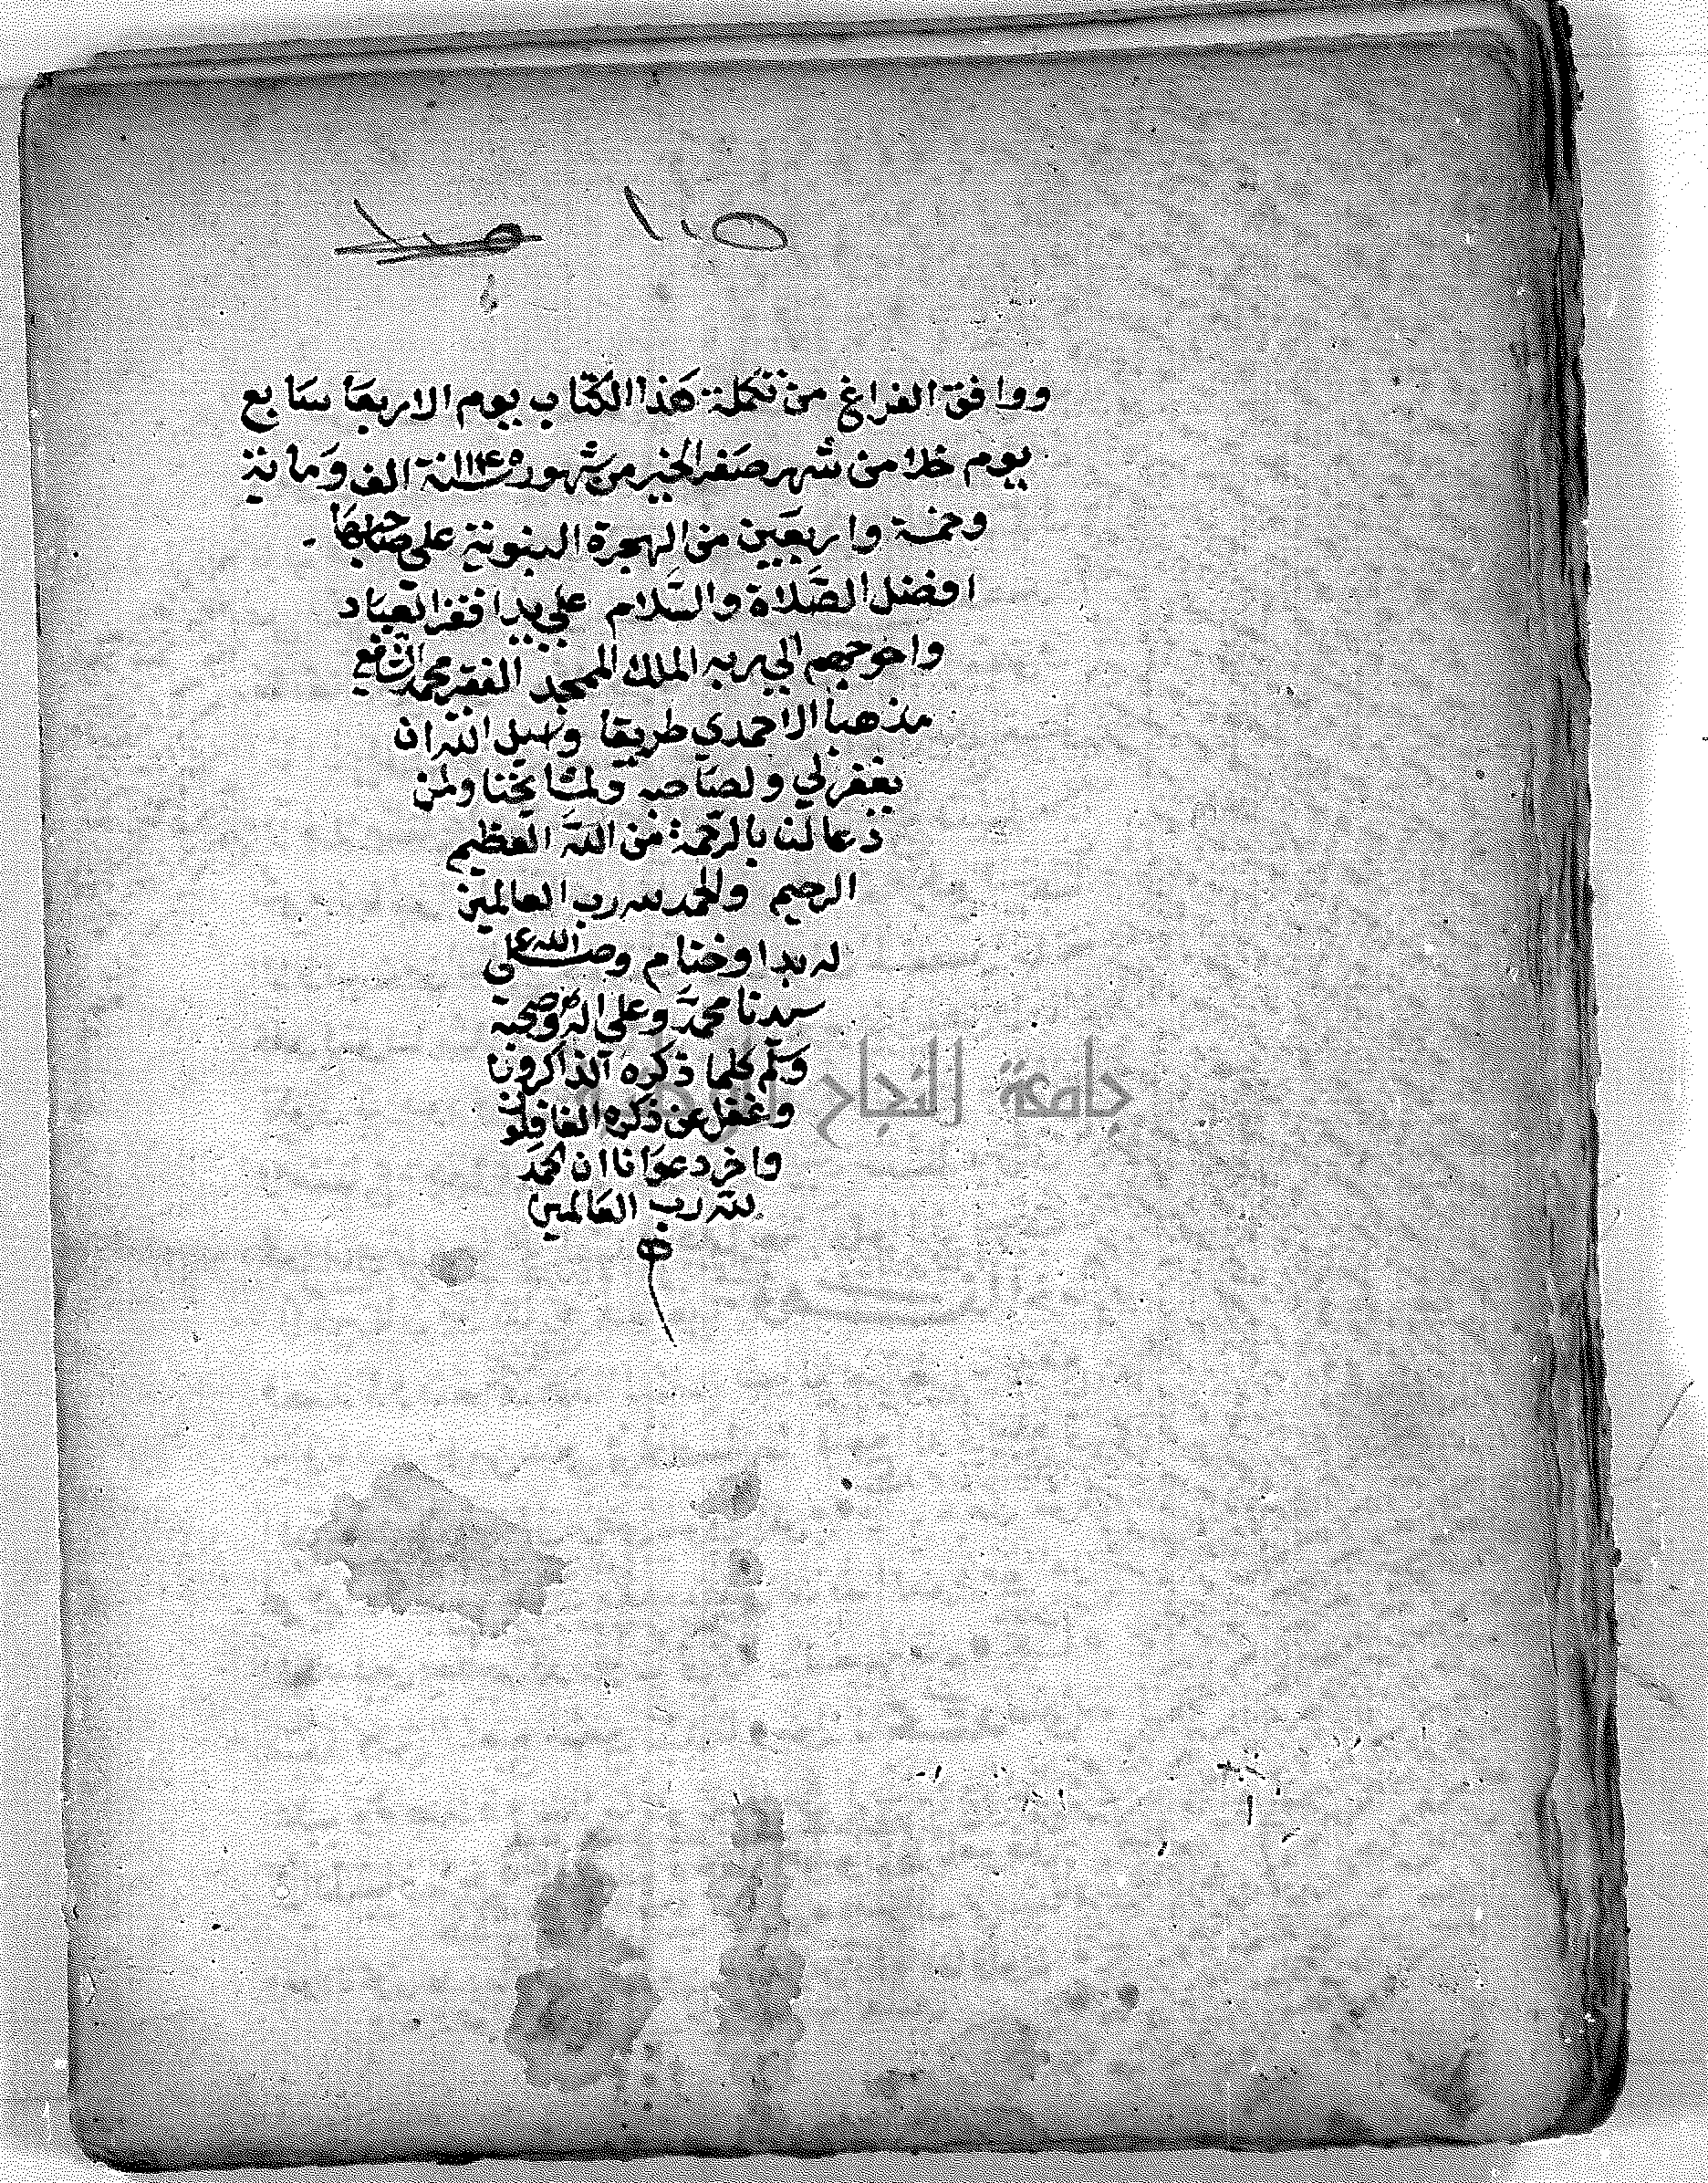 ١٠٥
ووافق الفراغ من تكملة هذا الكتاب يوم الاربعا سابع
يوم خلا من شهر صفر الخير من شهور سنة ١١٤٥ الف وماية
وخمسة واربعين من الهجرة النبوية على صاحبها
افضل الصلاة والسلام على يد افقر العباد
واحوجهم الى ربه الملك الممجد الفقير محمد الشافعي
مذهبا الاحمدي طريقا ونسل الله ان
يغفر لي ولصاحبه ولمشايخنا ولمن
دعا لنا بالرحمة من الله العظيم
الرحيم والحمد لله رب العالمين
له بدا وختام وصلى الله على
سيدنا محمد وعلى اله وصحبه
وسلم كلما ذكره الذاكرونا
وغفل عن ذكره الغافلون
واخر دعوانا ان الحمد
لله رب العالمين
جامعة النجاح الوطنية